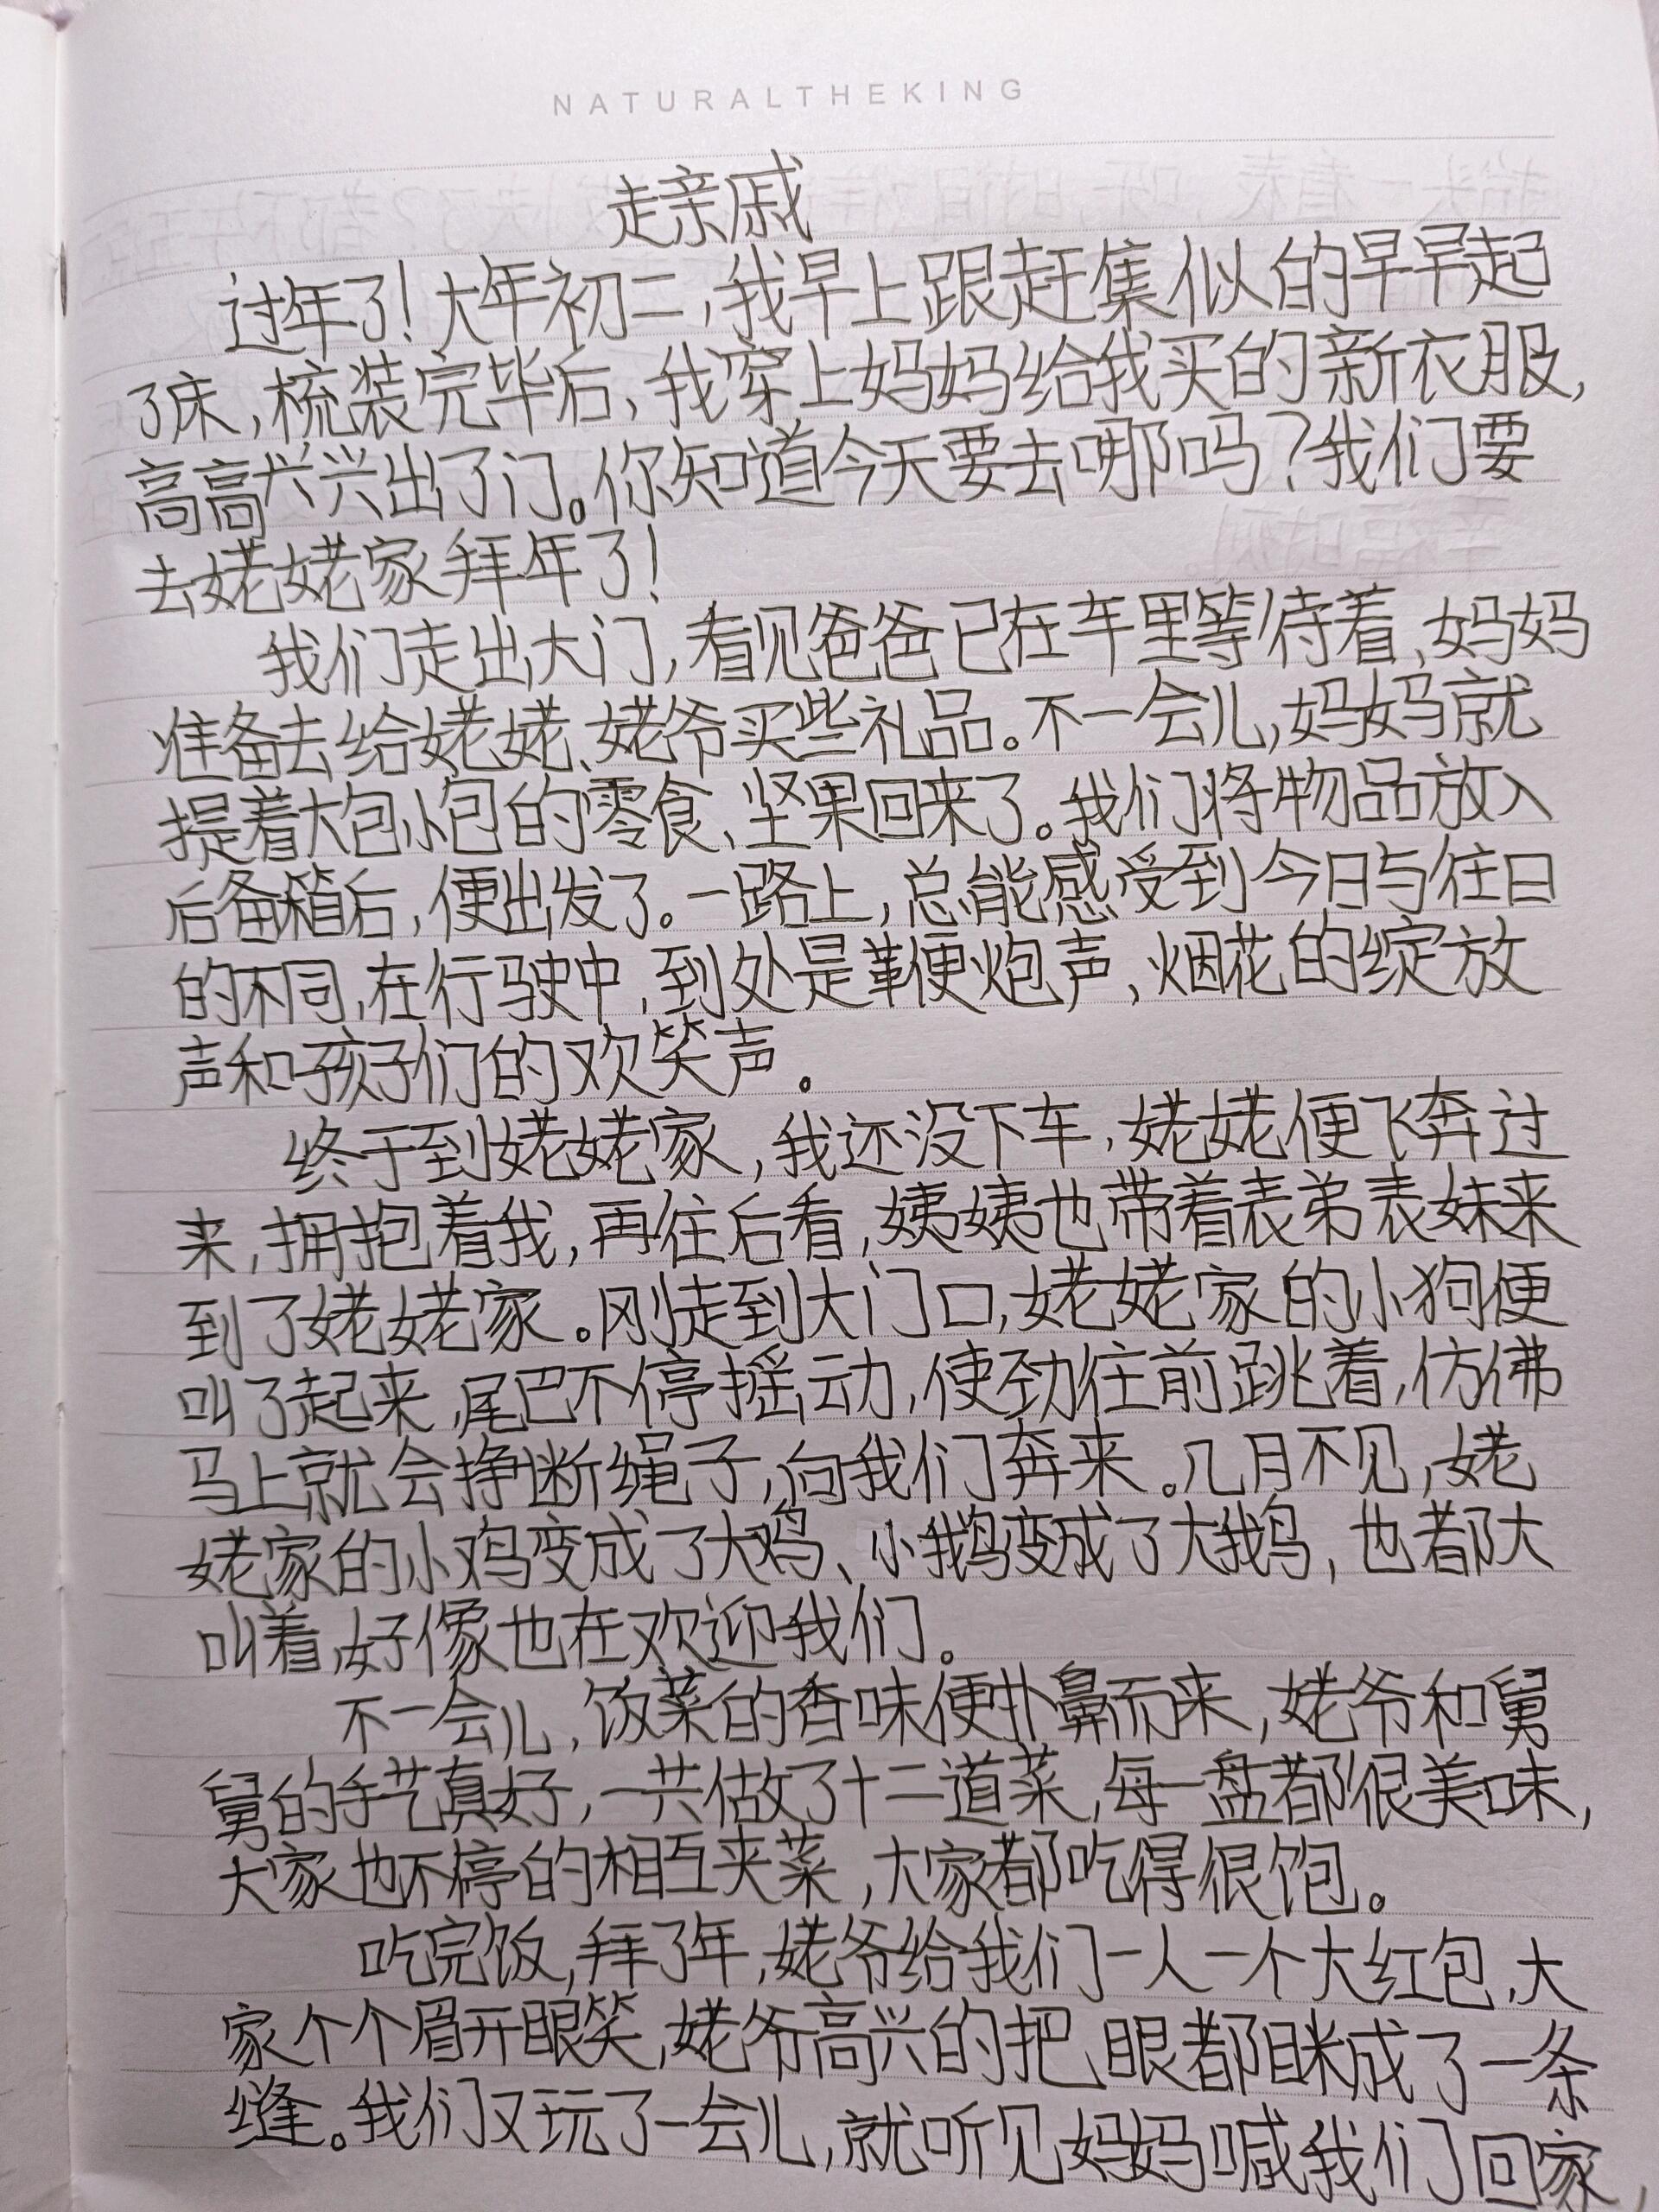 NATURALTHEKING
走亲戚
过年了！大年初二，我早上跟赶集似的早早起
了床，梳装完毕后，我穿上妈妈给我买的新衣服，
高高兴兴出了门。你知道今天要去哪吗？我们要
去姥姥家拜年了！
我们走出大门，看见爸爸已在车里等待着，妈妈
准备去给姥姥、姥爷买些礼品。不一会儿，妈妈就
提着大包小包的零食、坚果回来了。我们将物品放入
后备箱后，便出发了。一路上，总能感受到今日与往日
的不同，在行驶中，到处是鞭炮声，烟花的绽放
声和孩子们的欢笑声。
终于到姥姥家，我还没下车，姥姥便飞奔过
来，拥抱着我，再往后看，姨姨也带着表弟表妹来
到了姥姥家。刚走到大门口，姥姥家的小狗便
叫了起来，尾巴不停摇动，使劲往前跳着，仿佛
马上就会挣断绳子，向我们奔来。几月不见，姥
姥家的小鸡变成了大鸡、小鹅变成了大鹅，也都大
叫着，好像也在欢迎我们。
不一会儿，饭菜的香味便扑鼻而来，姥爷和舅
舅的手艺真好，一共做了十二道菜，每一盘都很美味，
大家也不停的相互夹菜，大家都吃得很饱。
吃完饭，拜了年，姥爷给我们一人一个大红包，大
家个个眉开眼笑，姥爷高兴的把眼都眯成了一条
缝。我们又玩了一会儿，就听见妈妈喊我们回家，